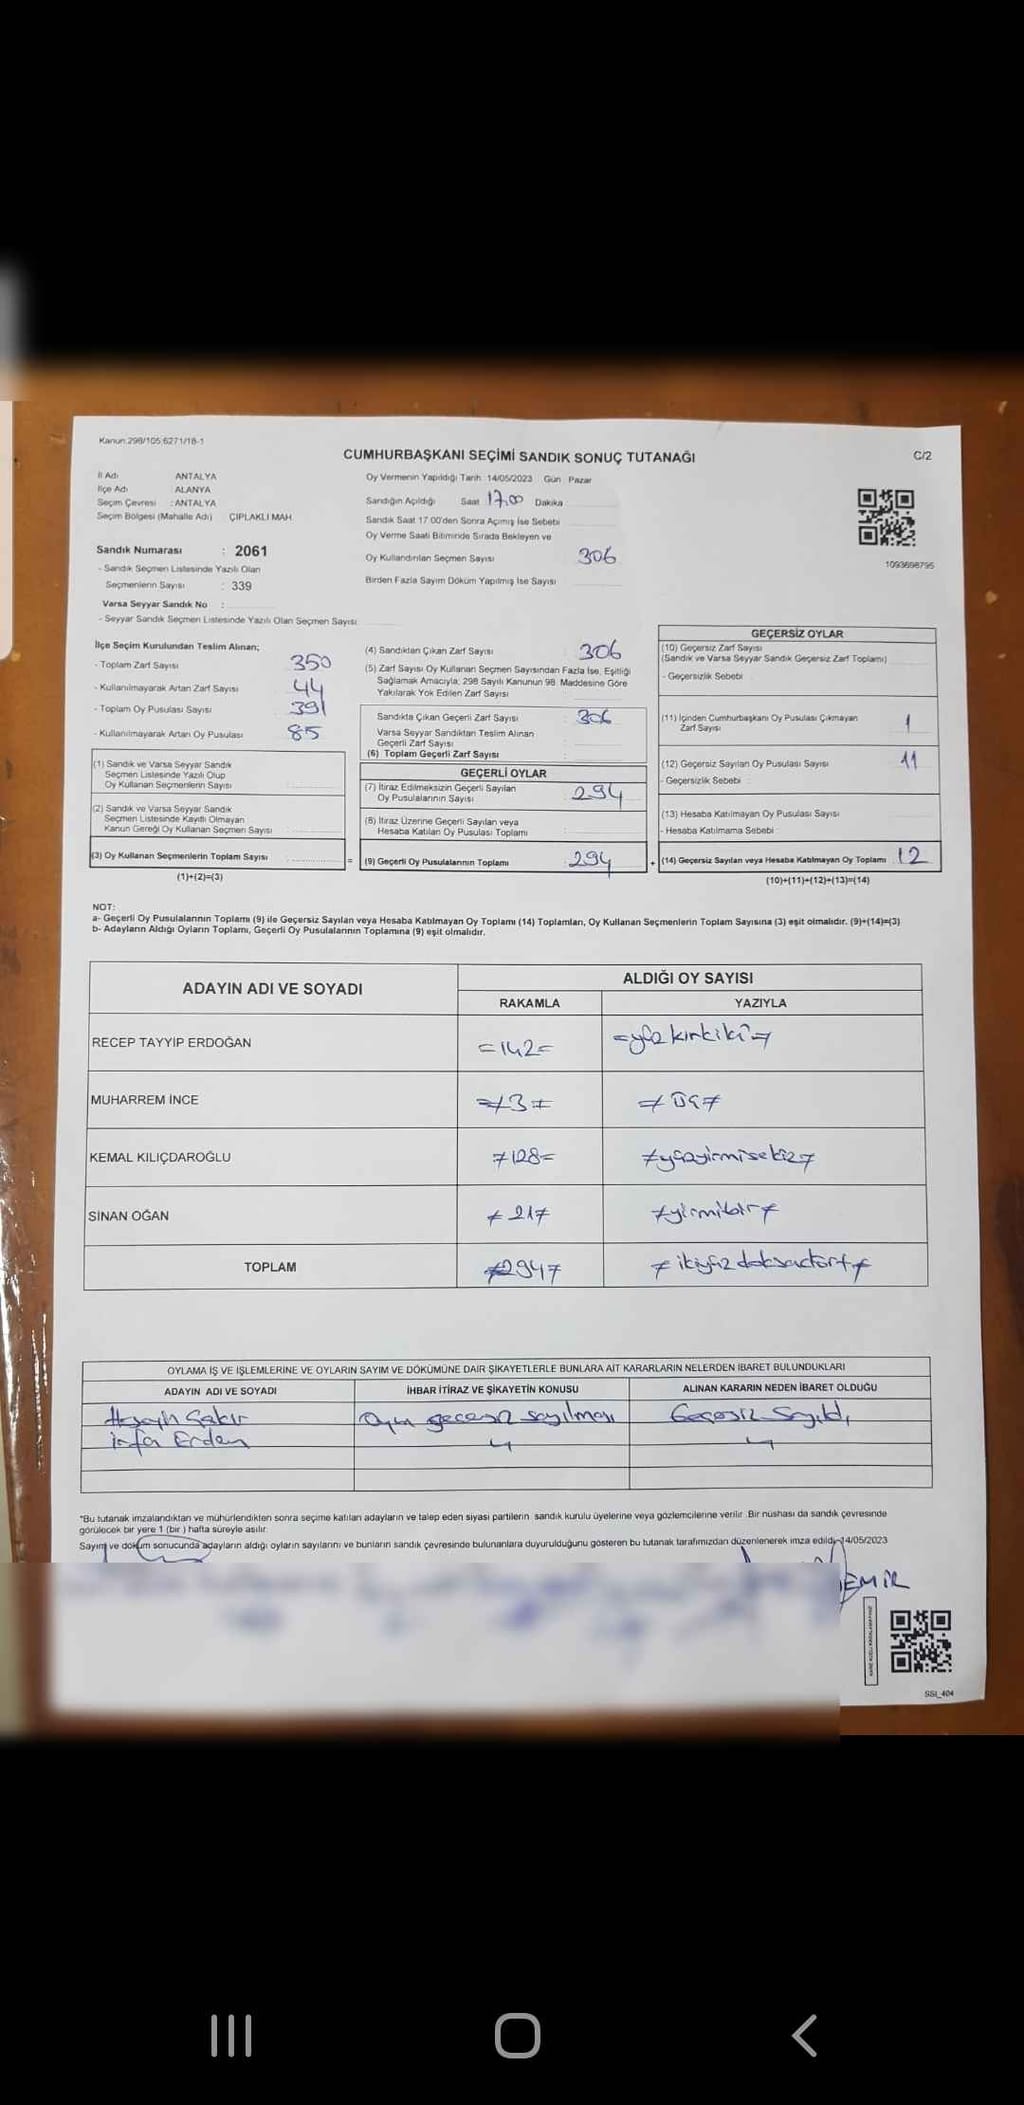 Kanun:298/105,6271/18-1
CUMHURBAŞKANI SEÇİMİ SANDIK SONUÇ TUTANAĞI
C/2
İl Adı ANTALYA
İlçe Adı : ALANYA
Seçim Çevresi : ANTALYA
Seçim Bölgesi (Mahalle Adı) ÇIPLAKLI MAH.
Oy Vermenin Yapıldığı Tarih: 14/05/2023 Gün: Pazar
Sandığın Açıldığı Saat 17,00 Dakika
Sandık Saat 17.00'den Sonra Açımış İse Sebebi
Oy Verme Saati Bitiminde Sırada Bekleyen ve
Oy Kullandırılan Seçmen Sayısı 306
Birden Fazla Sayım Döküm Yapılmış İse Sayısı
1093698795
Sandık Numarası : 2061
- Sandık Seçmen Listesinde Yazılı Olan
Seçmenlerin Sayısı : 339
Varsa Seyyar Sandık No :
- Seyyar Sandık Seçmen Listesinde Yazılı Olan Seçmen Sayısı:
İlçe Seçim Kurulundan Teslim Alınan;
- Toplam Zarf Sayısı 350
- Kullanılmayarak Artan Zarf Sayısı 44
- Toplam Oy Pusulası Sayısı 391
- Kullanılmayarak Artan Oy Pusulası 85
(1) Sandık ve Varsa Seyyar Sandık
Seçmen Listesinde Yazılı Olup
Oy Kullanan Seçmenlerin Sayısı
(2) Sandık ve Varsa Seyyar Sandık
Seçmen Listesinde Kayıtlı Olmayan
Kanun Gereği Oy Kullanan Seçmen Sayısı
(3) Oy Kullanan Seçmenlerin Toplam Sayısı =
(1)+(2)=(3)
(4) Sandıktan Çıkan Zarf Sayısı 306
(5) Zarf Sayısı Oy Kullanan Seçmen Sayısından Fazla İse, Eşitliği
Sağlamak Amacıyla; 298 Sayılı Kanunun 98. Maddesine Göre
Yakılarak Yok Edilen Zarf Sayısı
Sandıkta Çıkan Geçerli Zarf Sayısı 306
Varsa Seyyar Sandıktan Teslim Alınan
Geçerli Zarf Sayısı
(6) Toplam Geçerli Zarf Sayısı
GEÇERLİ OYLAR
(7) İtiraz Edilmeksizin Geçerli Sayılan
Oy Pusulalarının Sayısı 294
(8) İtiraz Üzerine Geçerli Sayılan veya
Hesaba Katılan Oy Pusulası Toplamı
(9) Geçerli Oy Pusulalarının Toplamı 294 +
GEÇERSİZ OYLAR
(10) Geçersiz Zarf Sayısı
(Sandık ve Varsa Seyyar Sandık Geçersiz Zarf Toplamı)
- Geçersizlik Sebebi
(11) İçinden Cumhurbaşkanı Oy Pusulası Çıkmayan
Zarf Sayısı 1
(12) Geçersiz Sayılan Oy Pusulası Sayısı 11
- Geçersizlik Sebebi :
(13) Hesaba Katılmayan Oy Pusulası Sayısı
- Hesaba Katılmama Sebebi
(14) Geçersiz Sayılan veya Hesaba Katılmayan Oy Toplamı 12
(10)+(11)+(12)+(13)=(14)
NOT:
a- Geçerli Oy Pusulalarının Toplamı (9) ile Geçersiz Sayılan veya Hesaba Katılmayan Oy Toplamı (14) Toplamları, Oy Kullanan Seçmenlerin Toplam Sayısına (3) eşit olmalıdır. (9)+(14)=(3)
b- Adayların Aldığı Oyların Toplamı, Geçerli Oy Pusulalarının Toplamına (9) eşit olmalıdır.
ADAYIN ADI VE SOYADI
ALDIĞI OY SAYISI
RAKAMLA YAZIYLA
RECEP TAYYİP ERDOĞAN =142= =yüz kırkiki=
MUHARREM İNCE ≠3≠ ≠üç≠
KEMAL KILIÇDAROĞLU ≠128= ≠yüzyirmisekiz≠
SİNAN OĞAN ≠21≠ ≠yirmibir≠
TOPLAM ≠294≠ ≠ikiyüzdoksandört≠
OYLAMA İŞ VE İŞLEMLERİNE VE OYLARIN SAYIM VE DÖKÜMÜNE DAİR ŞİKAYETLERLE BUNLARA AİT KARARLARIN NELERDEN İBARET BULUNDUKLARI
ADAYIN ADI VE SOYADI İHBAR İTİRAZ VE ŞİKAYETİN KONUSU ALINAN KARARIN NEDEN İBARET OLDUĞU
Çakır Oyun geçersiz sayılması Geçersiz Sayıldı,
Erden
*Bu tutanak imzalandıktan ve mühürlendikten sonra seçime katılan adayların ve talep eden siyasi partilerin sandık kurulu üyelerine veya gözlemcilerine verilir. Bir nüshası da sandık çevresinde
görülecek bir yere 1 (bir ) hafta süreyle asılır.
Sayım ve döküm sonucunda adayların aldığı oyların sayılarını ve bunların sandık çevresinde bulunanlara duyurulduğunu gösteren bu tutanak tarafımızdan düzenlenerek imza edildi. 14/05/2023
EMİR
SSI_404